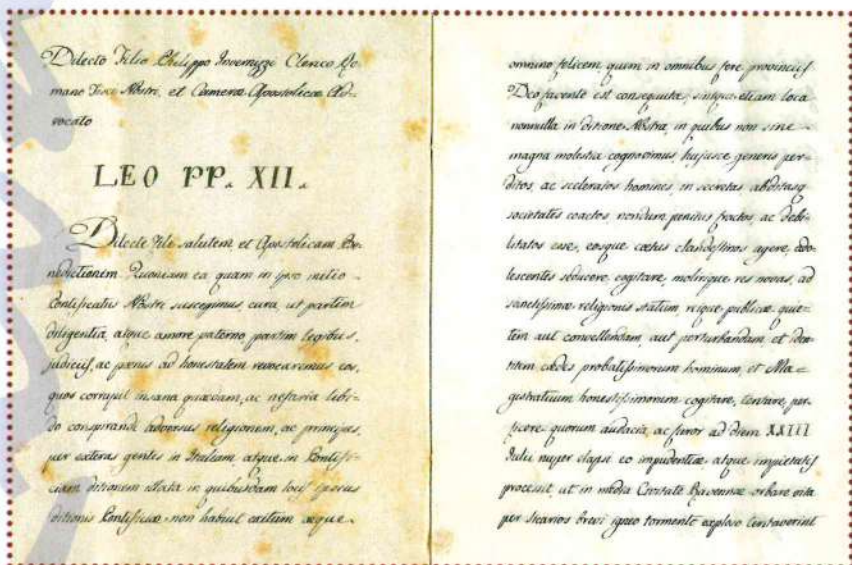 Dilecto Filio Philippo Invernizzi Clerico Ro-
mano Fisci Nostri, et Cameræ Apostolicæ Ad-
vocato
LEO PP. XII.
Dilecte Fili salutem et Apostolicam Be-
nedictionem. Quoniam ea quam in ipso initio
Pontificatus Nostri suscepimus, cura, ut partim
diligentia, atque amore paterno partim legibus,
judiciis, ac pœnis ad honestatem revocaremus eos,
quos corrupit insana quædam, ac nefaria libi-
do conspirandi adversus religionem, ac principes,
per exteras gentes in Italiam, atque in Pontifi-
ciam ditionem illata in quibusdam locis ipsius
ditionis Pontificiæ non habuit exitum æque
omnino felicem, quem in omnibus fere provinciis
Deo favente est consequuta, sintque etiam loca
nonnulla in ditione Nostra, in quibus non sine
magna molestia cognovimus, hujusce generis per-
ditos, ac sceleratos homines, in secretas abditasq
societates coactos nondum penitus fractos, ac debi-
litatos esse, eosque cœtus clandestinos agere, ado-
lescentes seducere, cogitare, molirique res novas, ad
sanctissimæ religionis statum, reique publicæ quie-
tem aut convellendam, aut perturbandam, et
cædes probatissimorum hominum, et Ma=
gistratuum honestissimorum cogitare, tentare, per-
ficere quorum audacia, ac furor ad diem XXIII
Julii nuper elapsi eo impudentiæ atque impietatis
processit, ut in media Civitate Ravennæ orbare vita
per sicarios brevi igneo tormento exploso tentaverint